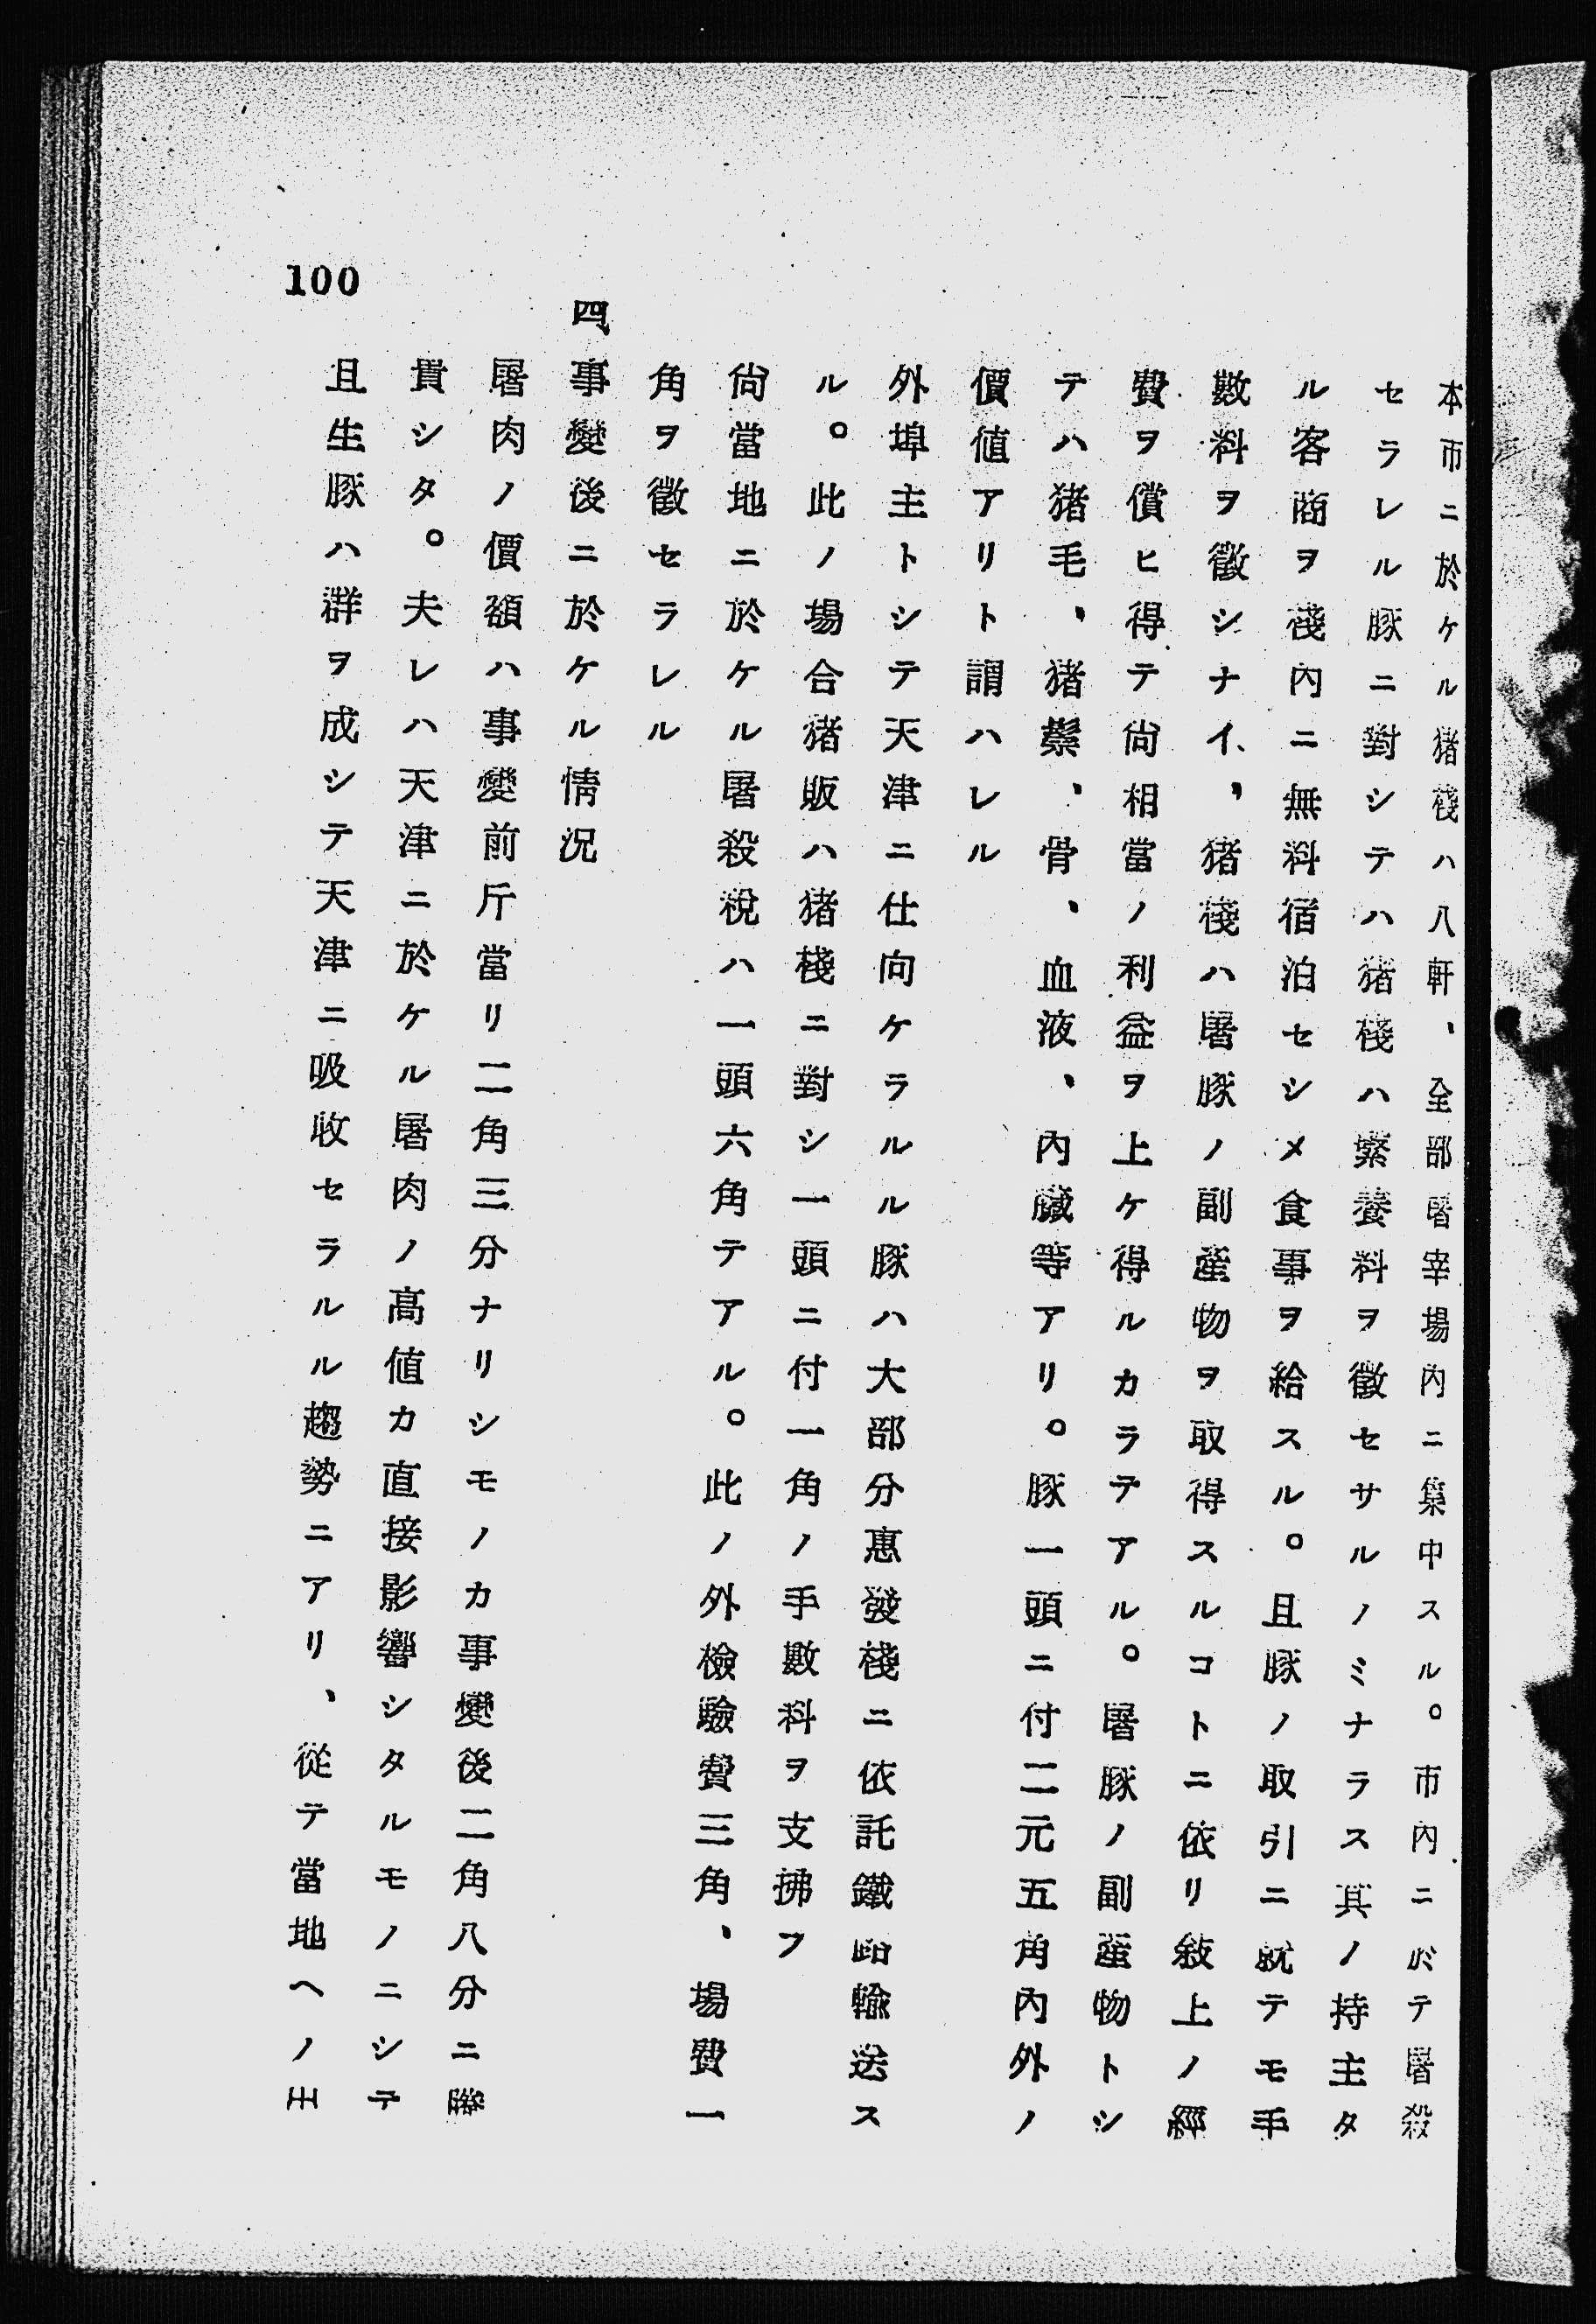 本市ニ於ケル猪棧ハ八軒、全部屠宰場內ニ集中スル。市內ニ於テ屠殺
セラレル豚ニ對シテハ猪棧ハ繁養料ヲ徵セサルノミナラス其ノ持主タ
ル客商ヲ棧內ニ無料宿泊セシメ食事ヲ給スル。且豚ノ取引ニ就テモ手
數料ヲ徵シナイ、猪棧ハ屠豚ノ副產物ヲ取得スルコトニ依リ敍上ノ經
費ヲ償ヒ得テ尙相當ノ利益ヲ上ケ得ルカラテアル。屠豚ノ副產物トシ
テハ猪毛、猪鬃、骨、血液、內臟等アリ。豚一頭ニ付二元五角內外ノ
價値アリト謂ハレル
外埠主トシテ天津ニ仕向ケラルル豚ハ大部分惠發棧ニ依託鐵路輸送ス
ル。此ノ場合猪販ハ猪棧ニ對シ一頭ニ付一角ノ手數料ヲ支拂フ
尙當地ニ於ケル屠殺稅ハ一頭六角テアル。此ノ外檢驗費三角、場費一
角ヲ徵セラレル
四 事變後ニ於ケル情況
屠肉ノ價額ハ事變前斤當リ二角三分ナリシモノカ事變後二角八分ニ騰
貴シタ。夫レハ天津ニ於ケル屠肉ノ高値カ直接影響シタルモノニシテ
且生豚ハ群ヲ成シテ天津ニ吸收セラルル趨勢ニアリ、從テ當地ヘノ出
100